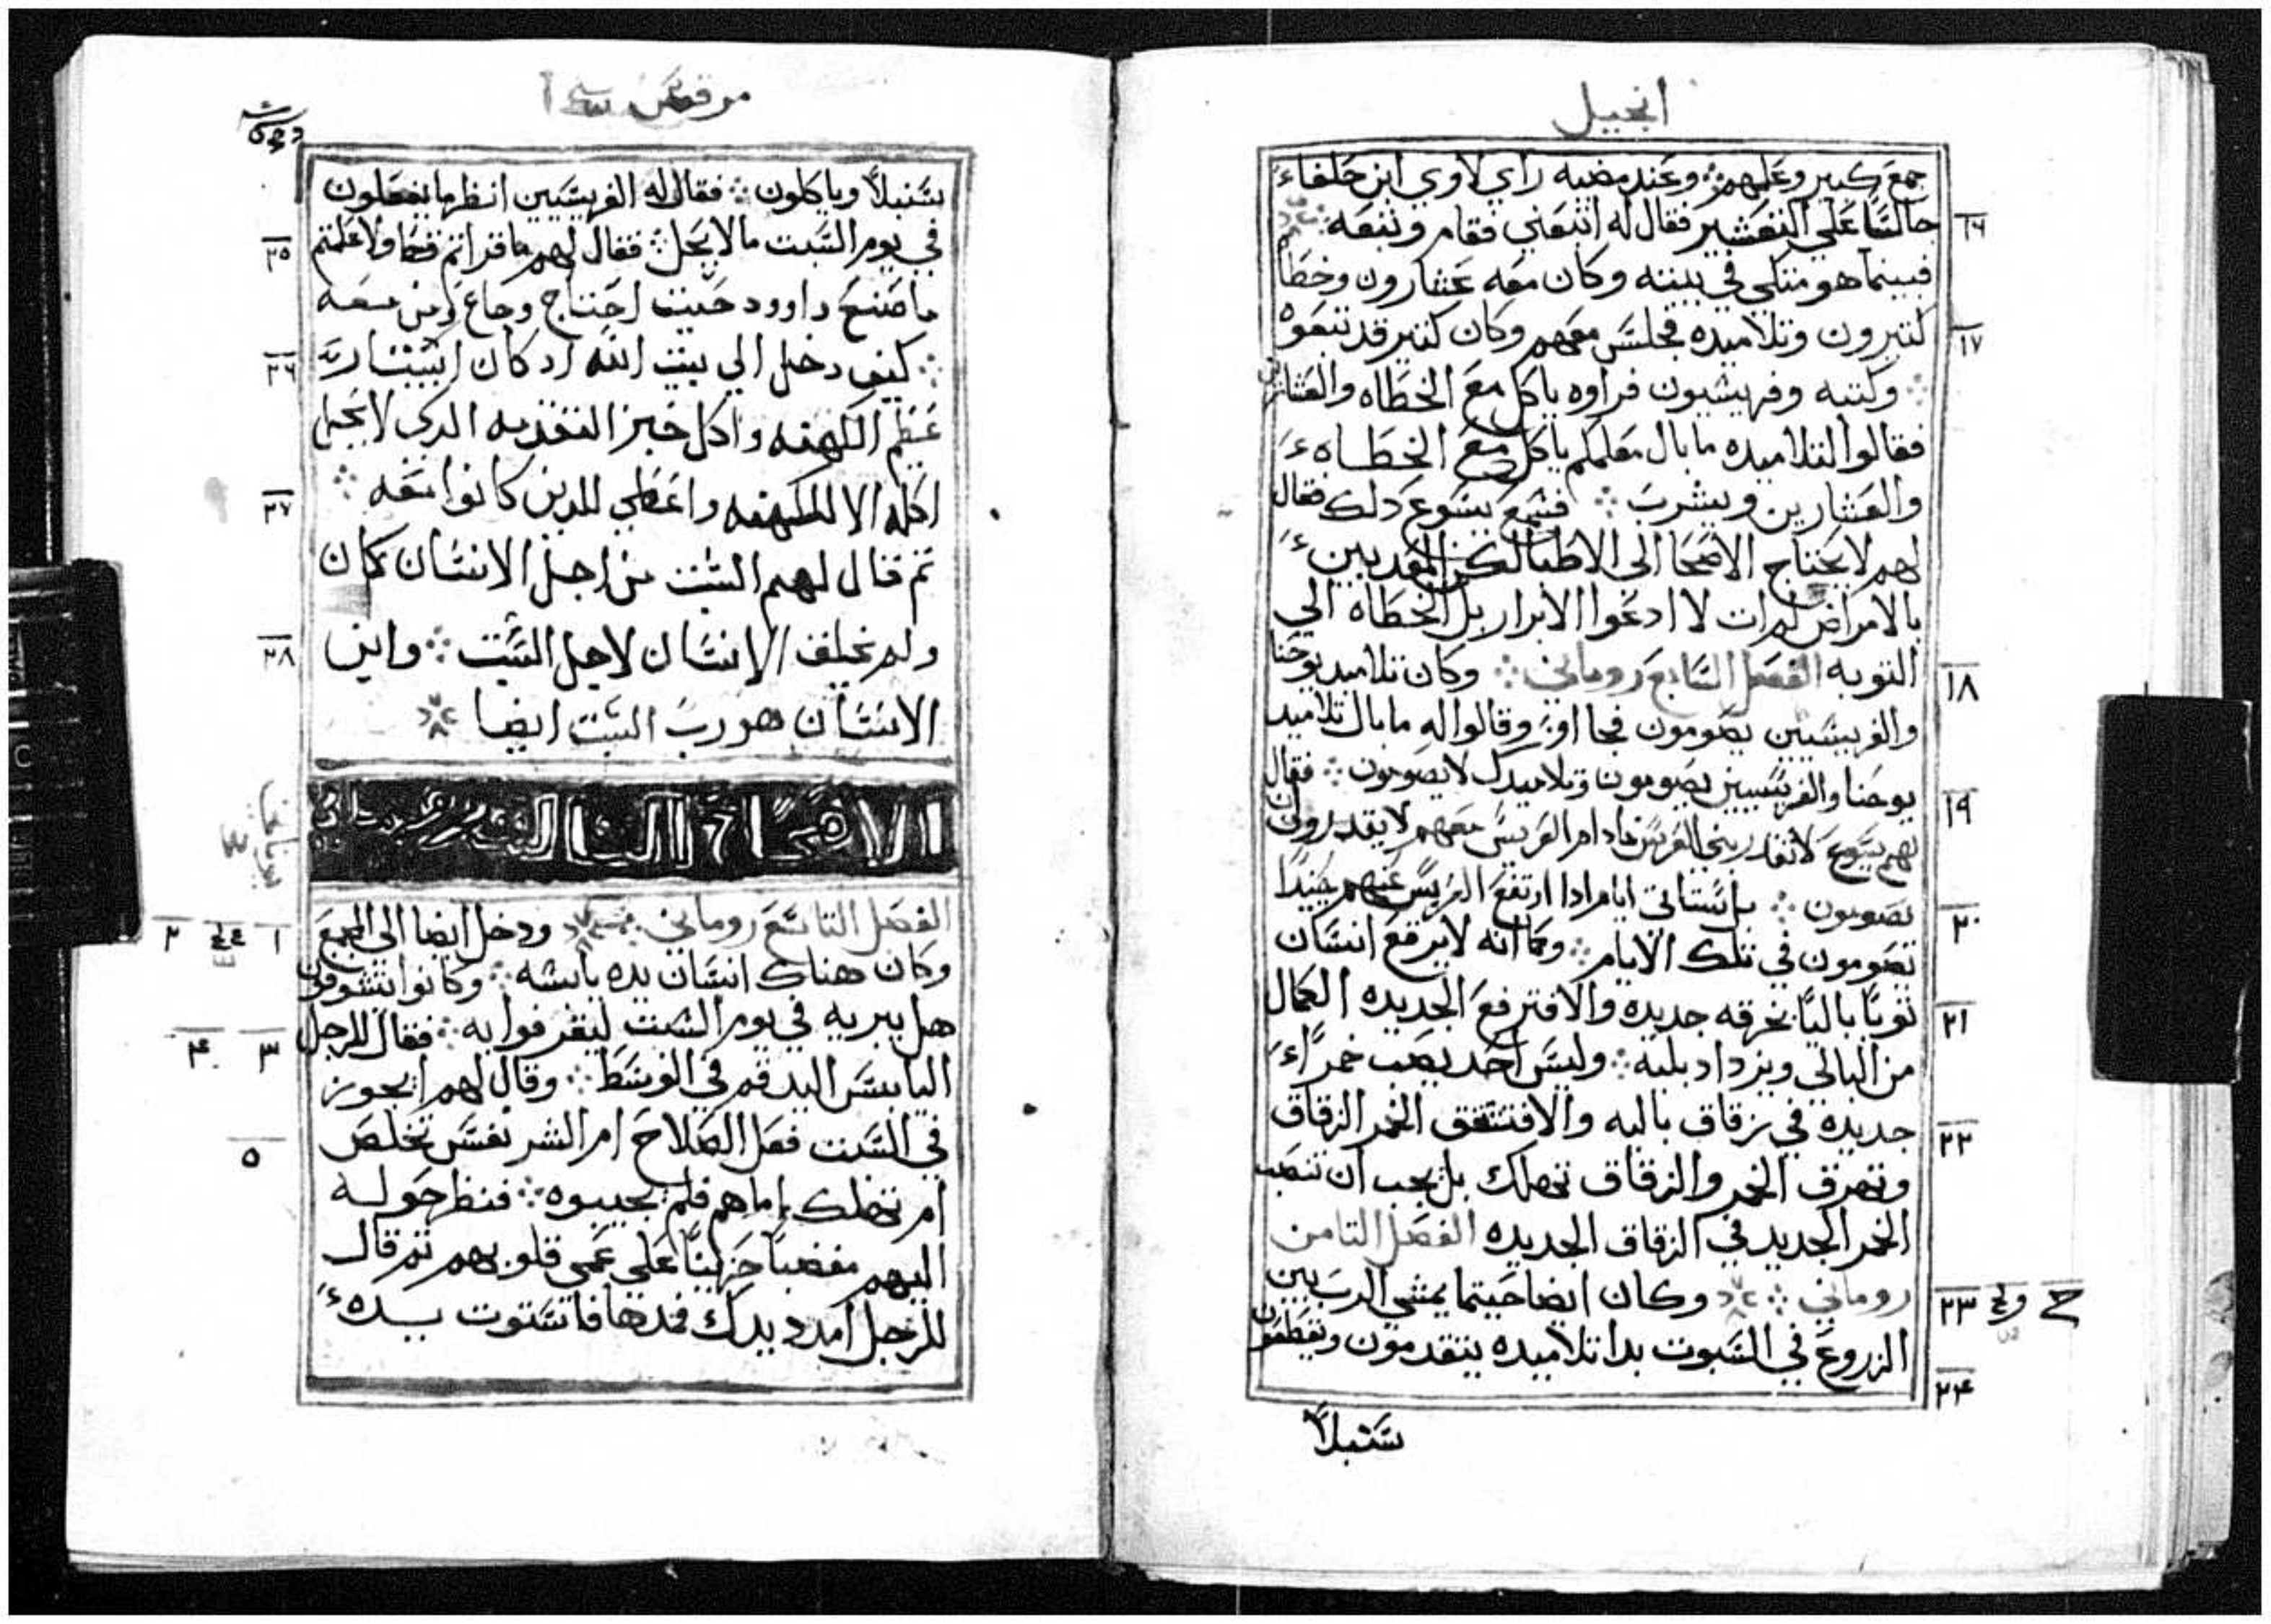 انجيل
جمع كبير وعلمهم ܀ وعند مضيه راي لاوي ابن حلفاء
١٤
جالسًا علي التعشير فقال له اتبعني فقام وتبعه ܀
فبينما هو متكي في بيته وكان معه عشارون وخطا
كتيرون وتلاميده فجلس معهم وكان كتير قد تبعوه
١٧
܀ وكتبه وفريسيون فراوه ياكل مع الخطاه والعشارين
فقالوا لتلاميده ما بال معلمكم ياكل مع الخطاه
والعشارين ويشرب ܀ فسمع يسوع دلك فقال
لهم لا يحتاج الاصحا الي الاطبا لكن المعدبين
بالامراض لم ات لا ادعوا الابرار بل الخطاه الي
التوبه الفصل السابع روماني ܀ وكان تلاميد يوحنا
١٨
والفريسيين يصومون فجا اوا وقالوا له ما بال تلاميد
يوحنا والفريسيين يصومون وتلاميدك لا يصومون ܀ فقال
١٩
لهم يسوع لا تقدر بني العريس مادام العريس معهم لا يقدرون ان
يصومون ܀ بل ستاتي ايام ادا ارتفع العريس عنهم حينيدًا
٢٠
تصومون في تلك الايام ܀ وكما انه لا يرقع انسان
توبًا باليًا بخرقه جديده والا فترفع الجديده الكمال
٢١
من البالي ويزداد بليه ܀ وليس احد يصب خمرًا
جديده في زقاق باليه والا فتشقق الخمر الزقاق
٢٢
وتهرق الخمر والزقاق تهلك بل يجب ان تصب
الخمر الجديد في الزقاق الجديده الفصل التامن
روماني ܀ وكان ايضا حيتما يمشي الرب بين
٢٣ ح
الزروع في السبوت بدا تلاميده يتقدمون ويقطعون
٢٤
سنبلاً
مرقس
سنبلاً وياكلون ܀ فقال له الفريسيين انظر ما يفعلون
في يوم السبت ما لا يحل ܀ فقال لهم ما قراتم قط ولا علمتم
٢٥
ما صنع داوود حيت احتاج وجاع ومن معه
܀ كيف دخل الي بيت الله اد كان ابيتار
٢٦
عظيم الكهنه واكل خبز التقدمه الدي لا يحل
اكله الا للكهنه واعطي للدين كانوا معه ܀
٢٧
تم قال لهم السبت من اجل الانسان كان
ولم يخلق الانسان لاجل السبت ܀ وابن
٢٨
الانسان هو رب السبت ايضا
الاصحاح التالت
الفصل التاسع روماني ܀ ودخل ايضا الي المجمع
١ ٢
وكان هناك انسان يده يابسه ܀ وكانوا يتشوفون
هل يبريه في يوم السبت ليقرفوا به ܀ فقال للرجل
٣ ٤
اليابس اليد قم في الوسط ܀ وقال لهم ايجوز
في السبت فعل الصلاح ام الشر نفس تخلص
٥
ام تهلك اما هم فلم يجيبوه ܀ فنظر حوله
اليهم مغضبًا حزينًا علي عمي قلوبهم تم قال
للرجل امدد يدك فمدها فاستوت يده